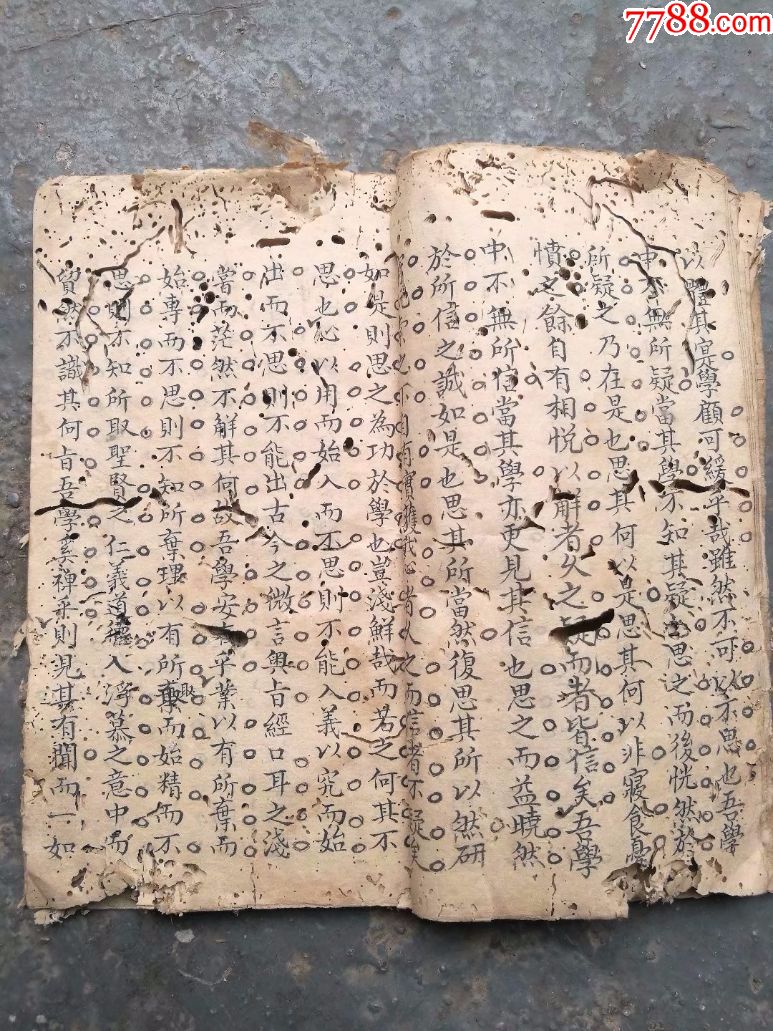 7788.com
以 其寔學顧可緩乎哉雖然不可以不思也吾學
中不無所疑當其學不知其疑 思之而後恍然於
所疑之乃在是也思其何以是思其何以非寢食
憤 之餘自有相悅以解者久之疑而者皆信矣吾學
中不無所信當其學亦更見其信也思之而益曉然
於所信之誠如是也思其所當然復思其所以然研
人之而信者不疑
如是則思之為功於學也豈淺鮮哉而若之何其不
思也心以用而始入而不思則不能入義以究而始
出而不思則不能出古今之微言奧旨經口耳之淺
嘗而茫然不解其何故吾學安 乎業以有所棄而
始專而不思則不知所棄理以有所聚而始精而不
思則不知所取聖賢之仁義道德入浮慕之意中而
貿然不識其何旨吾學奚禆乎則見其有聞而一如